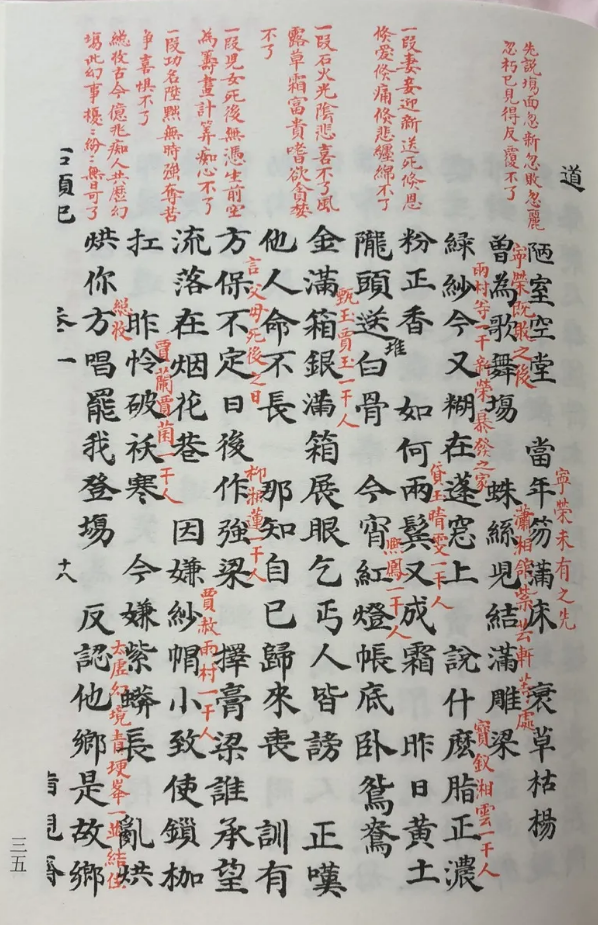 先說塲面忽新忽敗忽麗
忽朽已見得反覆不了
一段妻妾迎新送死倏恩
倏愛倏痛倏悲纏綿不了
一段石火光陰悲喜不了風
露草霜富貴嗜欲貪婪
不了
一段児女死後無憑生前空
為籌畫計算痴心不了
一段功名陞黜無時強奪苦
争喜惧不了
總收古今億兆痴人共歷幻
塲此幻事擾〻紛〻無日可了
道
寧榮未有之先
陋室空堂 當年笏滿床 衰草枯楊
寧榮既敗之後
瀟湘舘紫芸軒等處
曾為歌舞塲 蛛絲児結滿雕梁
雨村等一干新榮暴發之家
寶釵湘雲一干人
綠紗今又糊在蓬窓上 說什麽脂正濃
貸玉晴雯一干人
粉正香 如何兩鬓又成霜 昨日黃土
堆
熙鳳一干人
隴頭送白骨 今宵紅燈帳底卧鴛鴦
甄玉賈玉一干人
金滿箱銀滿箱展眼乞丐人皆謗 正嘆
他人命不長 那知自已歸來喪 訓有
言父母死後之日
柳湘蓮一干人
方保不定日後作強梁 擇膏梁誰承望
賈赦雨村一干人
流落在烟花巷 因嫌紗帽小致使鎖枷
賈蘭賈菌一干人
扛 昨怜破袄寒 今嫌紫蟒長 亂烘
總收
太虛幻境青埂峯一並結住
烘你方唱罷我登塲 反認他鄉是故鄉
卷一
十八
三五